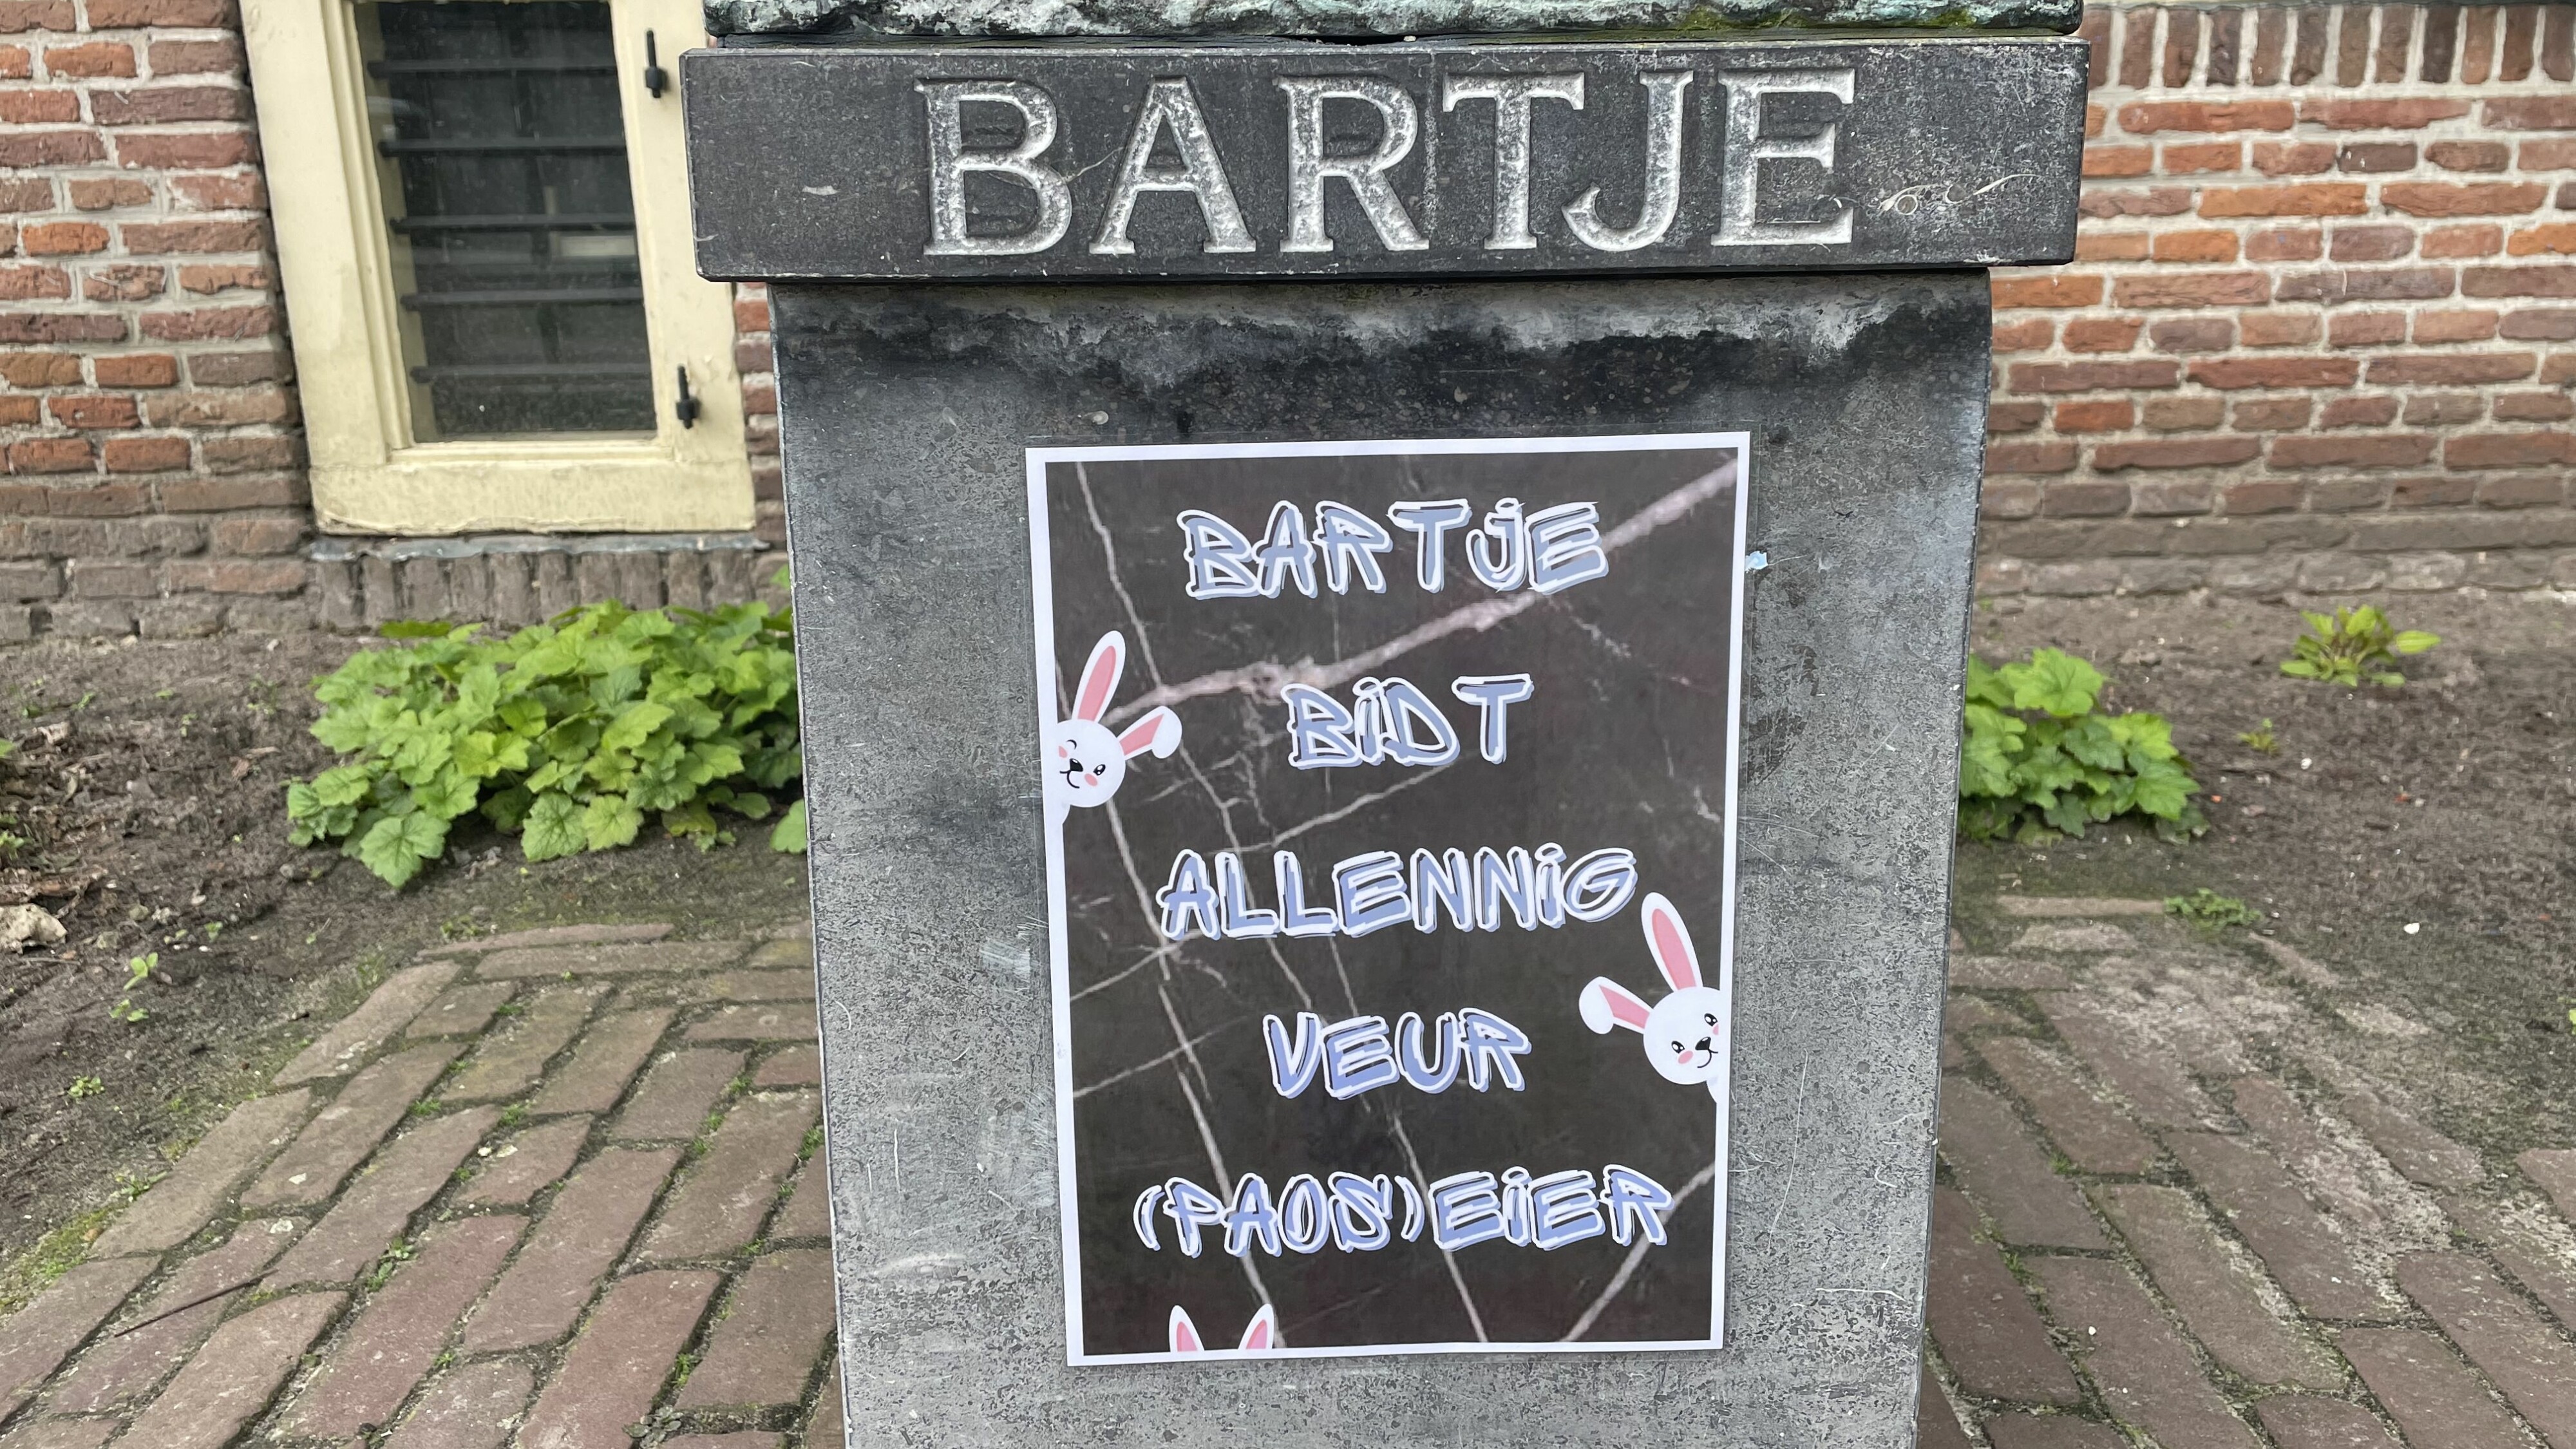 BARTJE
BARTJE
BIDT
ALLENNIG
VEUR
(PAOS)EIER